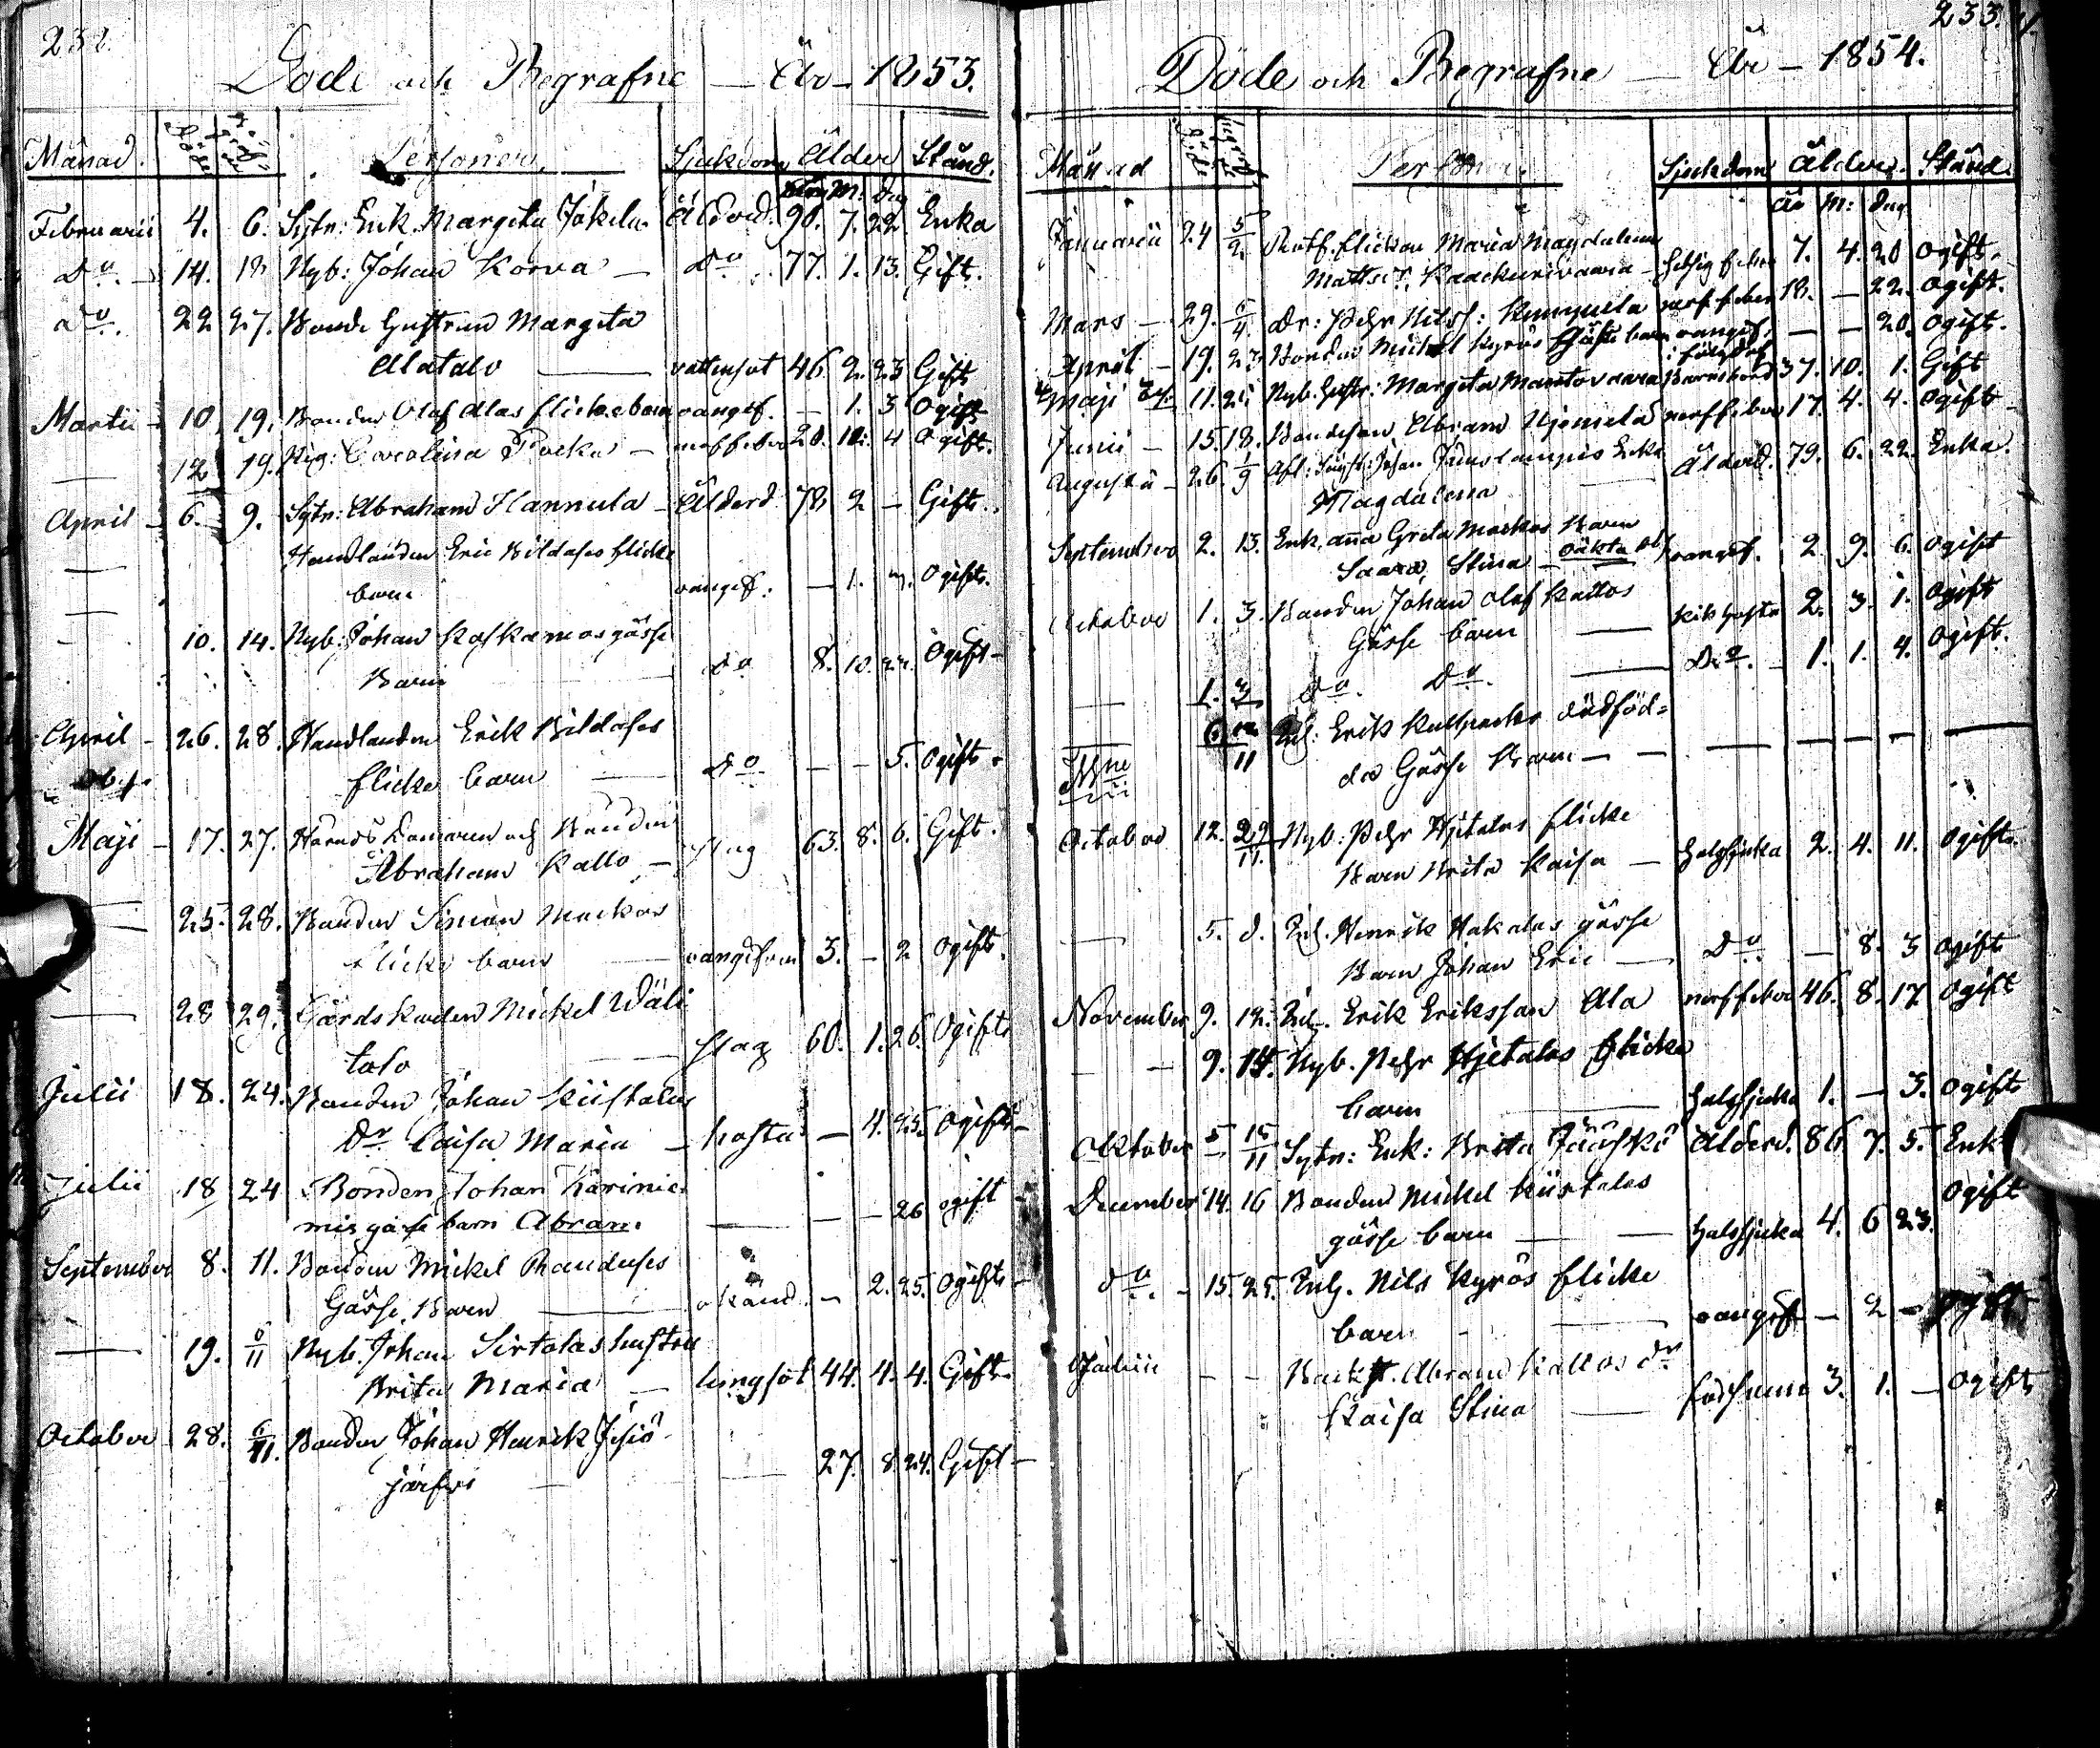 232.
Döde och Begrafne — År — 1853.
Månad. Döde Personer. Sjukdom Ålder Stånd.
M: Dag
Februarii 4. 6. Sytn: Enk. Margeta Jokela Ålderd. 90. 7. 22 Enka
Do. 14. 18 Nyb: Johan Korva — Do 77. 1. 13. Gift.
Do. 22 27. Bonde Hustrun Margeta
Alatalo — vattensot 46 2. 23 Gift
Martii 10. 19. Bonden Olof Alas flicke barn oangif. — 1. 3 Ogift
— 12 19. Pig: Carolina — nerffeber 20. 10. 4 Ogift.
April — 6. 9. Sytn: Abraham Hannula — Ålderd. 78 2 — Gift.
— Handlanden Eric flicke
barn oangif. — 1. 7. Ogift.
10. 14. Nyb: Johan gåsse
Barn — Do 8. 10. 22. Ogift —
April — 26. 28. Handlanden Erik
Obs. flicke barn — Do — — 5. Ogift.
Maji — 17. 27. Härads Domaren och Bonden
Abraham Kallo — slag 63. 8. 6. Gift.
— 25. 28. Bonden Simon Markos
flicke barn — oangifven 3. — 2 Ogift.
— 28 29. Gårdskarlen Mickel Wäli
talo — slag 60. 1. 26. Ogift
Julii 18. 24. Bonden Johan Kiistalas
Dr. Caisa Maria — hosta — 4. 25. Ogift —
Julii 18 24 Bonden Johan Karinie
mis gåsse barn Abram. — — — 26 ogift
September 8. 11. Bonden Mickel
Gåsse Barn — okänd. — 2. 25. Ogift —
— 19. 6/11 Nyb. Johan Sirtalas hustru
Brita Maria — lungsot 44. 4. 4. Gift.
October — 28. 6/11. Bonden Johan Henrik Jesiö
järfvi — — 27. 8 24. Gift —
233.
Döde och Begrafne — År — 1854.
Månad Döde Personer. Sjukdom Ålder. Stånd.
År M: Dag
Januarii 24 5/2 Rotf. flickan Maria Magdalena
Mattsdr. 7. 4. 20 Ogift.
Mars — 29. 6/4 Dr: Pehr Nilss: nerffeber 18. — 22. Ogift.
April — 19. 23 Bonden Mickel Kyrös Gåsse barn oangif. — — 20. Ogift.
Maji 11. 21 Nyb. Hustr: Margeta Mantovaara Barnsbörd 37. 10. 1. Gift
Junii — 15 18. Bondeson Abram nerffeber 17. 4. 4. Ogift
Augusti — 26. 1/9 Afl: Johan Enka
Magdalena — Ålderd. 79. 6. 22. Enka.
September 2. 13. Enk. Anna Greta Markos Barn
Saara Stina — oäkta oangif. 2. 9. 6. Ogift
October 1. 3. Bonden Johan Olof Kallos
Gåsse barn — Kikhosta 2. 3. 1. Ogift
— 1. 3 Do Do. — Do. 1. 1. 4. Ogift.
12/11 Inh: Erik dödföd=
da Gåsse Barn — — — — — —
October 12. 29/11. Nyb: Pehr Hjetalas flicke
Barn Brita Kaisa — halssjuka 2. 4. 11. Ogift.
— 5. 8. Inh. Henrik Hakalas gåsse
Barn Johan Eric — Do — 8. 3 Ogift
November 9. 12. Inh. Erik Eriksson Ala nerffeber 46. 8. 17 Ogift
— 9. 14. Nyb. Pehr Hjetalas flicke
barn — halssjuka 1. — 3. Ogift
Oktober 5 15/11 Sytn: Enk: Brita Jääskö Ålderd. 86 7. 5. Enk
December 14. 16 Bonden Mickel Kiistalas Ogift
gåsse barn — halssjuka 4. 6 23.
Do. — 15. 25. Inh. Nils Kyrös flicke
barn — oangif — 2 — Ogift
— — Abram Kallos dr
Kaisa Stina — 3. 1. — Ogift